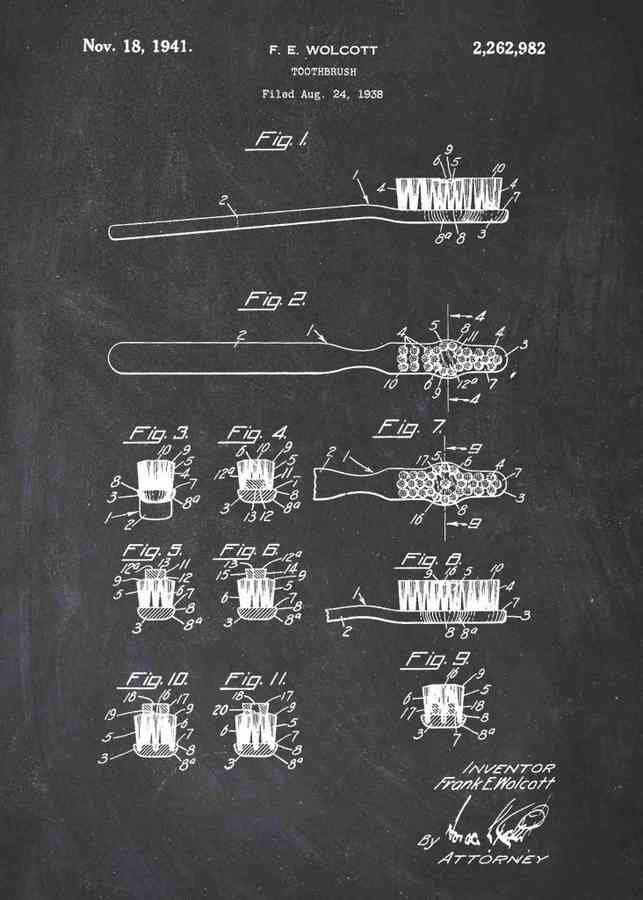 Nov. 18, 1941.
F. E. WOLCOTT
2,262,982
TOOTHBRUSH
Filed Aug. 24, 1938
Fig. 1.
9
6 5
10
4
4
1
7
2
8ª 8
3
Fig. 2.
4
5 8 11
2
1
4
4
3
10
6
9
12ª
7
4
Fig. 3.
10 9
5
4
8
7
3
8ª
1
2
Fig. 4.
6 10 9
5
12ª
11
7
8
3
8ª
13 12
Fig. 7.
9
2
1
17
5
6
4
7
3
16
8
9
Fig. 5.
12ª 13
11
9
12
5
6
7
8
3
8ª
Fig. 6.
13
12ª
15
14
9
6
5
7
8
3
8ª
Fig. 8.
9 16 5
4
1
7
3
2
8 8ª
Fig. 10.
18 16
17
19
9
5
5
6
7
8
3
8ª
Fig. 11.
18
17
20
9
5
6
7
8
3
8ª
Fig. 9.
16
9
5
6
18
17
8
3
8ª
7
INVENTOR
Frank E. Wolcott
By
ATTORNEY